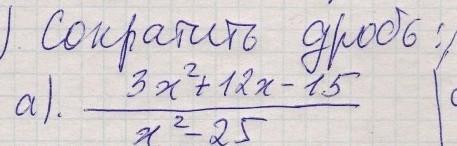 ) Сократить дробь:
а). (3x²+12x-15)/(x²-25)